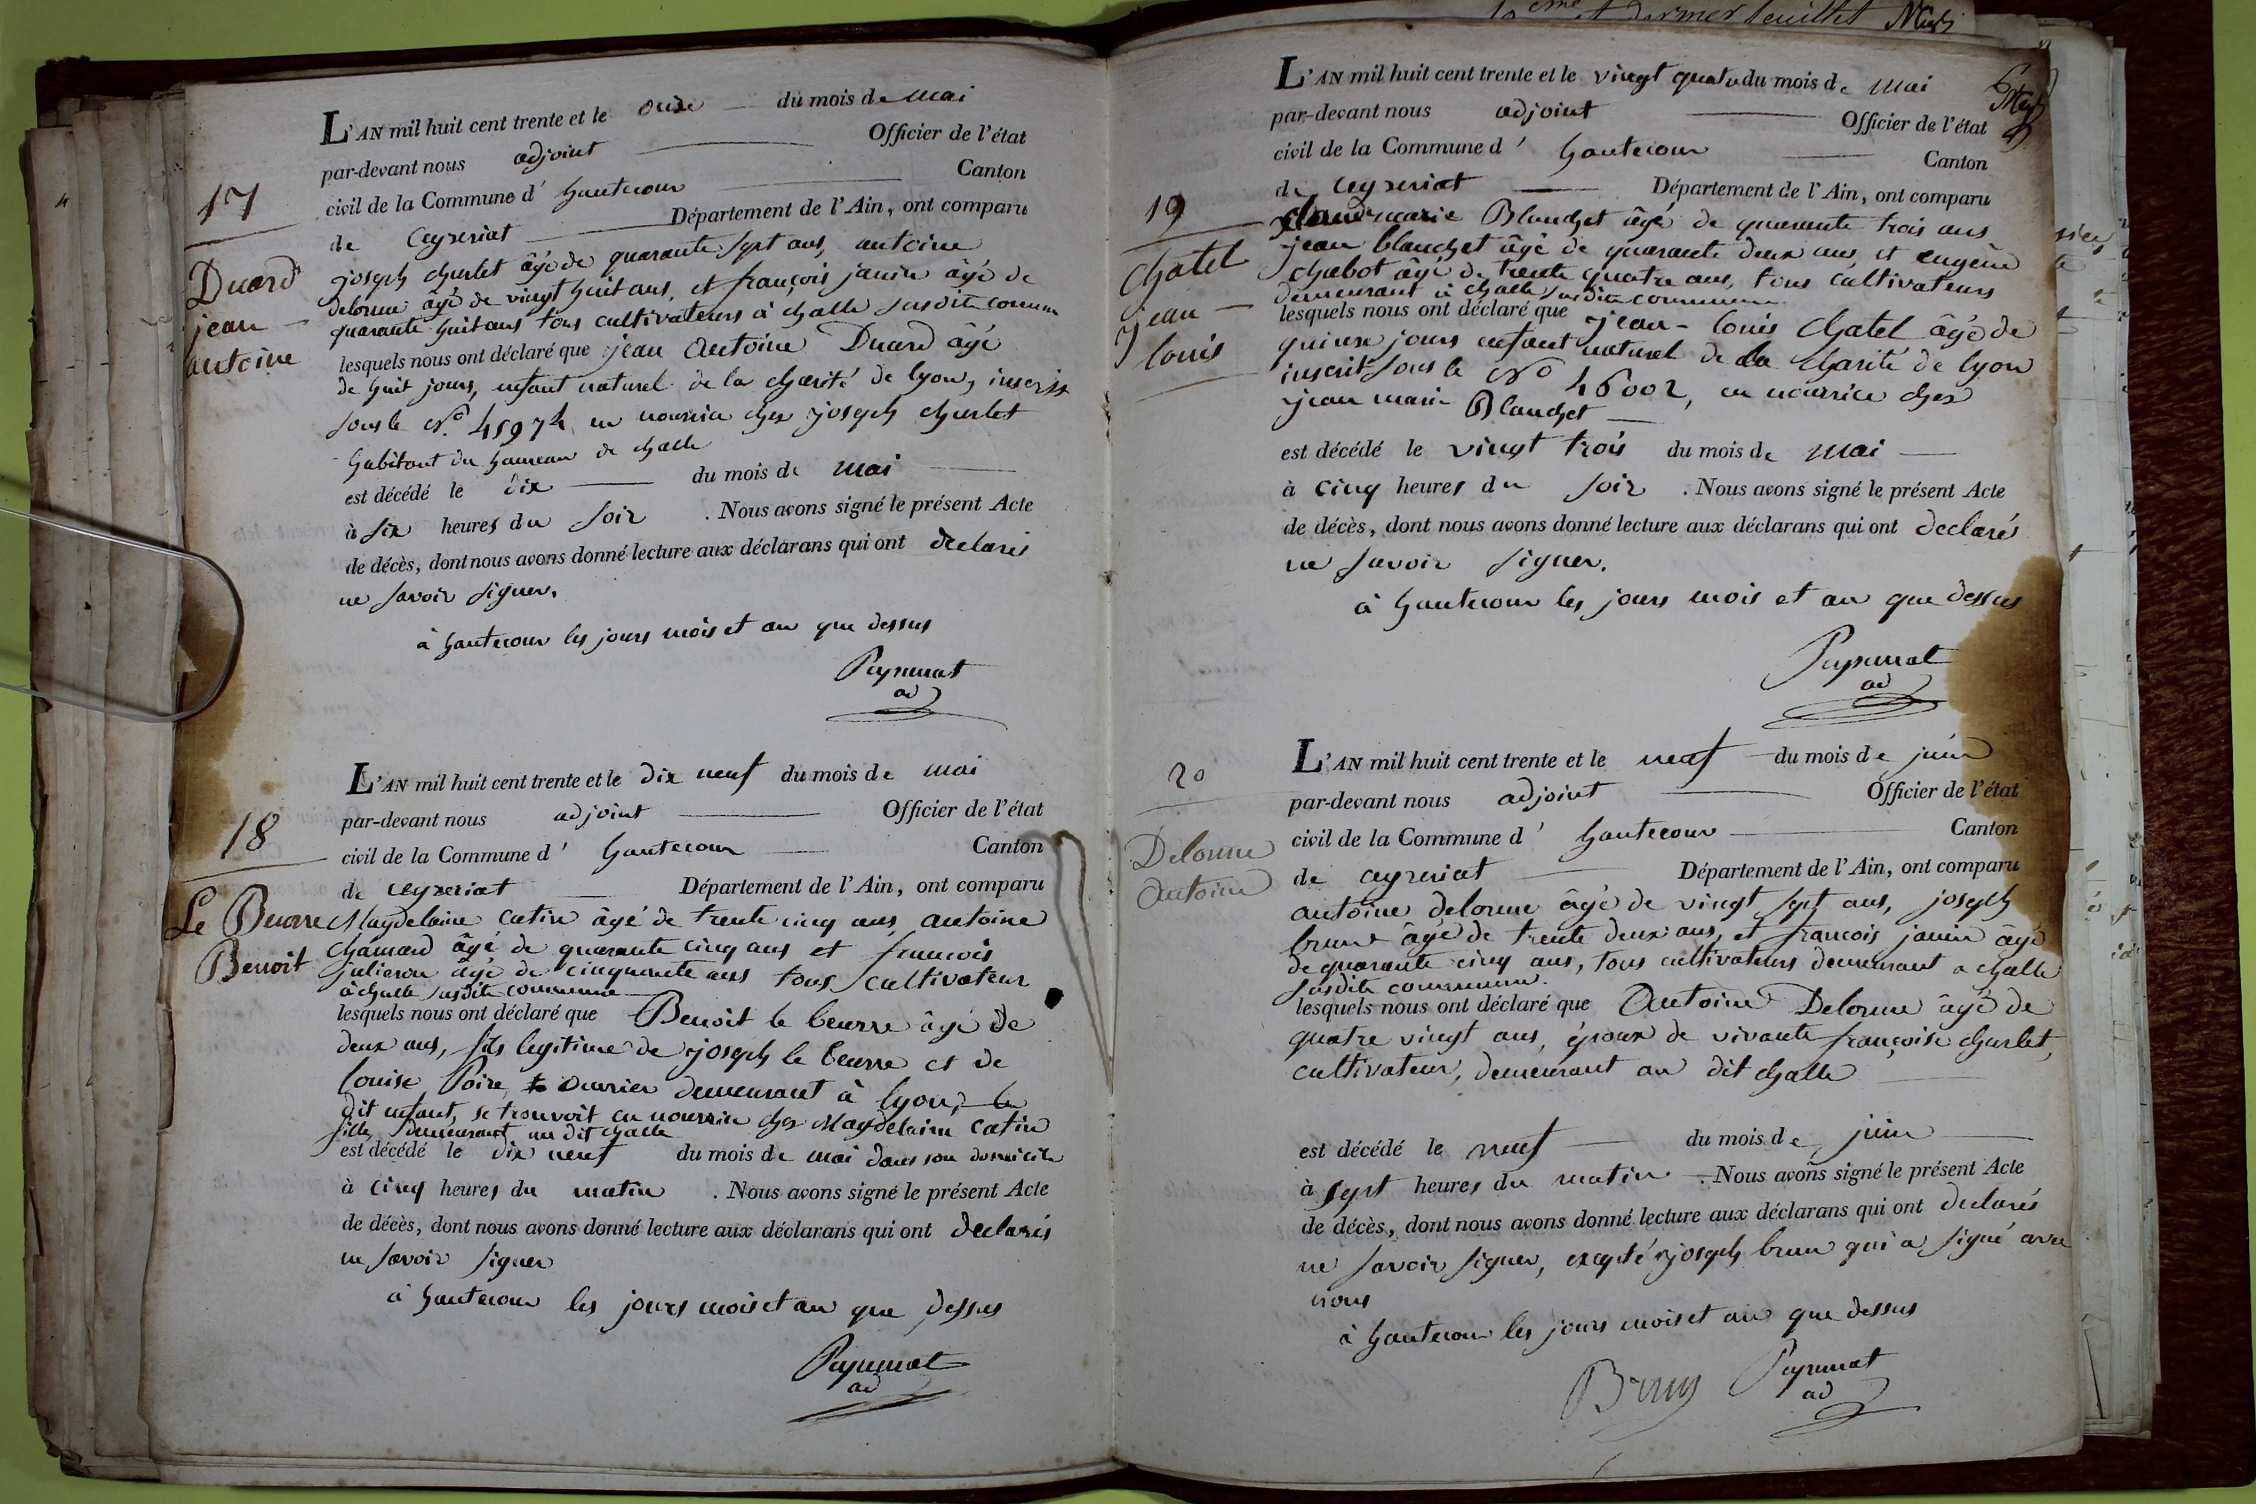 17
Duard
jean
antoine
L'AN mil huit cent trente et le onze du mois de mai
par-devant nous adjoint Officier de l'état
civil de la Commune d' hautecour Canton
de Ceyzeriat Département de l'Ain, ont comparu
joseph churlet âgé de quarante sept ans, antoine
delorme âgé de vingt huit ans, et françois janin âgé de
quarante huit ans tous cultivateurs à challe susdite commune
lesquels nous ont déclaré que jean Antoine Duard âgé
de huit jours, enfant naturel de la charité de lyon, inscrit
sous le N.o 45974 en nourrice chez joseph churlet
habitant du hameau de challe
est décédé le dix du mois de mai
à six heures du soir . Nous avons signé le présent Acte
de décès, dont nous avons donné lecture aux déclarans qui ont declarés
ne savoir signer.
à hautecour les jours mois et an que dessus
ad
18
Le Beurre
Benoit
L'AN mil huit cent trente et le dix neuf du mois de mai
par-devant nous adjoint Officier de l'état
civil de la Commune d' hautecour Canton
de ceyzeriat Département de l'Ain, ont comparu
Magdelaine catin âgé de trente cinq ans, antoine
chanard âgé de quarante cinq ans et francois
julieron âgé de cinquante ans tous cultivateur
à challe susdite commune
lesquels nous ont déclaré que Benoit le beurre âgé de
deux ans, fils legitime de joseph le beurre et de
louise Poire, ouvrier demeurant à lyon, le
dit enfant, se trouvoit en nourrice chez Magdelaine catin
fille, demeurant au dit challe
est décédé le dix neuf du mois de mai dans son domicile
à cinq heures du matin . Nous avons signé le présent Acte
de décès, dont nous avons donné lecture aux déclarans qui ont declarés
ne savoir signer
à hautecour les jours mois et an que dessus
ad
19
chatel
jean
louis
L'AN mil huit cent trente et le vingt quatre du mois de mai
par-devant nous adjoint Officier de l'état
civil de la Commune d' hautecour Canton
de ceyzeriat Département de l'Ain, ont comparu
marie Blanchet âgé de quarante trois ans
jean blanchet âgé de quarante deux ans, et eugène
chabot âgé de trente quatre ans, tous cultivateurs
demeurant à challe susdite commune
lesquels nous ont déclaré que jean-louis chatel âgé de
quinze jours enfant naturel de la charité de lyon
inscrit sous le No 46002, en nourrice chez
jean marie Blanchet
est décédé le vingt trois du mois de mai
à cinq heures du soir . Nous avons signé le présent Acte
de décès, dont nous avons donné lecture aux déclarans qui ont declarés
ne savoir signer.
à hautecour les jours mois et an que dessus
ad
20
Delorme
Antoine
L'AN mil huit cent trente et le neuf du mois de juin
par-devant nous adjoint Officier de l'état
civil de la Commune d' hautecour Canton
de ceyzeriat Département de l'Ain, ont comparu
antoine delorme âgé de vingt sept ans, joseph
brun âgé de trente deux ans, et francois janin âgé
de quarante cinq ans, tous cultivateurs demeurant a challe
susdite commune.
lesquels nous ont déclaré que Antoine Delorme âgé de
quatre vingt ans, époux de vivante françoise churlet,
cultivateur, demeurant au dit challe
est décédé le neuf du mois de juin
à sept heures du matin . Nous avons signé le présent Acte
de décès, dont nous avons donné lecture aux déclarans qui ont declarés
ne savoir signer, excepté joseph brun qui a signé avec
nous
à hautecour les jours mois et an que dessus
Brun
ad